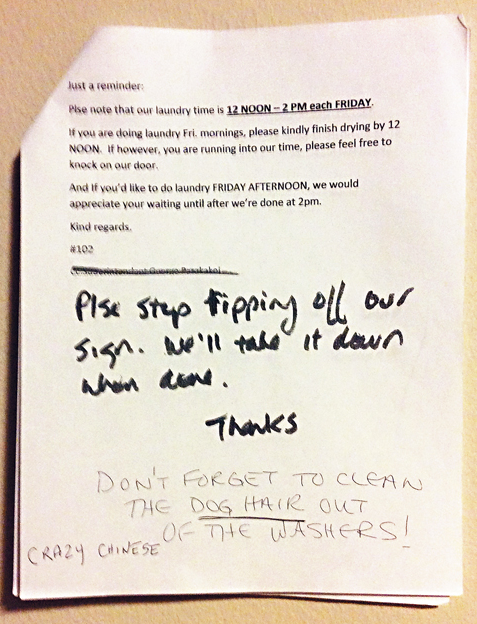 Just a reminder:
Plse note that our laundry time is 12 NOON – 2 PM each FRIDAY.
If you are doing laundry Fri. mornings, please kindly finish drying by 12
NOON. If however, you are running into our time, please feel free to
knock on our door.
And If you'd like to do laundry FRIDAY AFTERNOON, we would
appreciate your waiting until after we're done at 2pm.
Kind regards.
#102
Plse stop ripping off our
sign. We'll take it down
when done.
Thanks
DON'T FORGET TO CLEAN
THE DOG HAIR OUT
OF THE WASHERS!
CRAZY CHINESE